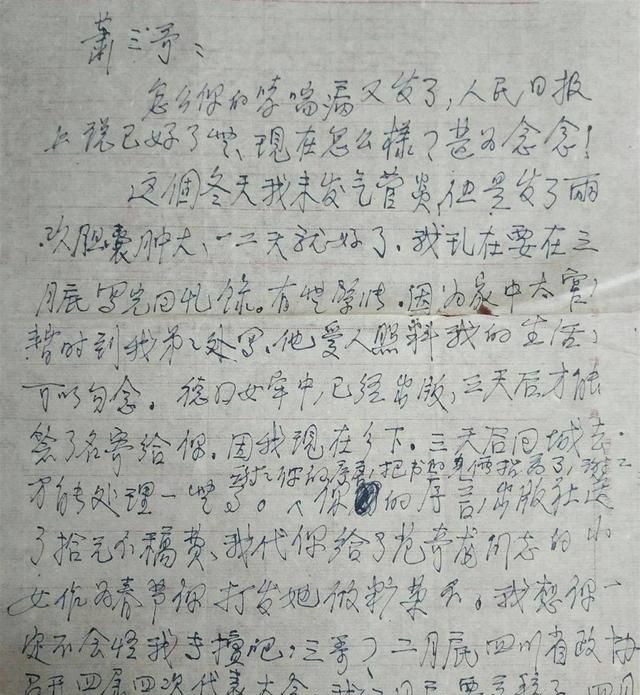 萧三哥：
怎么你的哮喘病又发了，人民日报
上说已好了些，现在怎么樣？甚为念念！
这個冬天我未发气管炎，但是发了两
次胆囊肿大，一二天就好了。我现在要在三
月底写完回忆录。有些紧张。因为家中太
暂时到我弟处写，他爱人照料我的生活，
可以勿念。女牢中，已经出版，三天后才能
签了名寄给你。因我现在乡下。三天后回城去
才能处理一些了。你的序言，出版社送
了拾元不稿费，我代你给了范奇同志的小
女作为春节你打发她做
我想你一
定不会怪我专擅吧？三哥，二月底四川省政协
召开四届四次代表大会，我